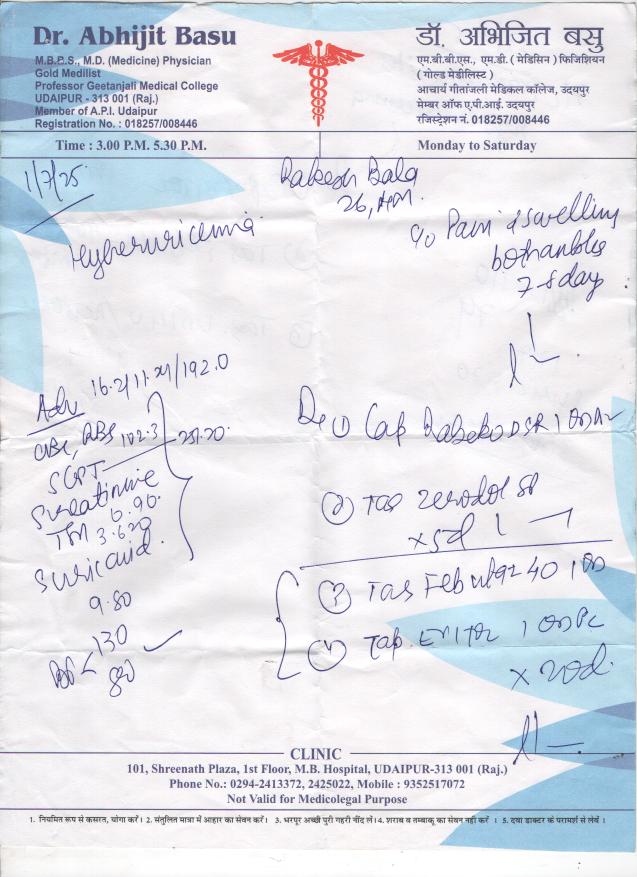 Dr. Abhijit Basu
M.B.B.S., M.D. (Medicine) Physician
Gold Medilist
Professor Geetanjali Medical College
UDAIPUR - 313 001 (Raj.)
Member of A.P.I. Udaipur
Registration No. : 018257/008446
डॉ. अभिजित बसु
एम.बी.बी.एस., एम.डी. ( मेडिसिन ) फिजिशियन
( गोल्ड मेडीलिस्ट )
आचार्य गीतांजली मेडिकल कॉलेज, उदयपुर
मेम्बर ऑफ ए.पी.आई. उदयपुर
रजिस्ट्रेशन नं. 018257/008446
Time : 3.00 P.M. 5.30 P.M.
Monday to Saturday
1/7/25
Rakesh Bala
26,
Hyperuricemia
c/o Pain & swelling
both ankles
7-8 day
Adv 16.2/11.21/192.0
CBC, RBS 102.3
SGPT 251.20
S creatinine
0.90
TSH 3.620
S uric acid
9.80
BP < 130
80
① Cap Rabeko DSR 1 OD AC
② Tab Zerodol SP
x 5d 1 — 1
③ Tab Febulaz 40 1 OD
④ Tab. 1 OD PC
x 20d.
CLINIC
101, Shreenath Plaza, 1st Floor, M.B. Hospital, UDAIPUR-313 001 (Raj.)
Phone No.: 0294-2413372, 2425022, Mobile : 9352517072
Not Valid for Medicolegal Purpose
1. नियमित रूप से कसरत, योगा करें। 2. संतुलित मात्रा में आहार का सेवन करें। 3. भरपूर अच्छी पुरी गहरी नींद लें। 4. शराब व तम्बाकू का सेवन नहीं करें । 5. दवा डाक्टर के परामर्श से लेवें ।